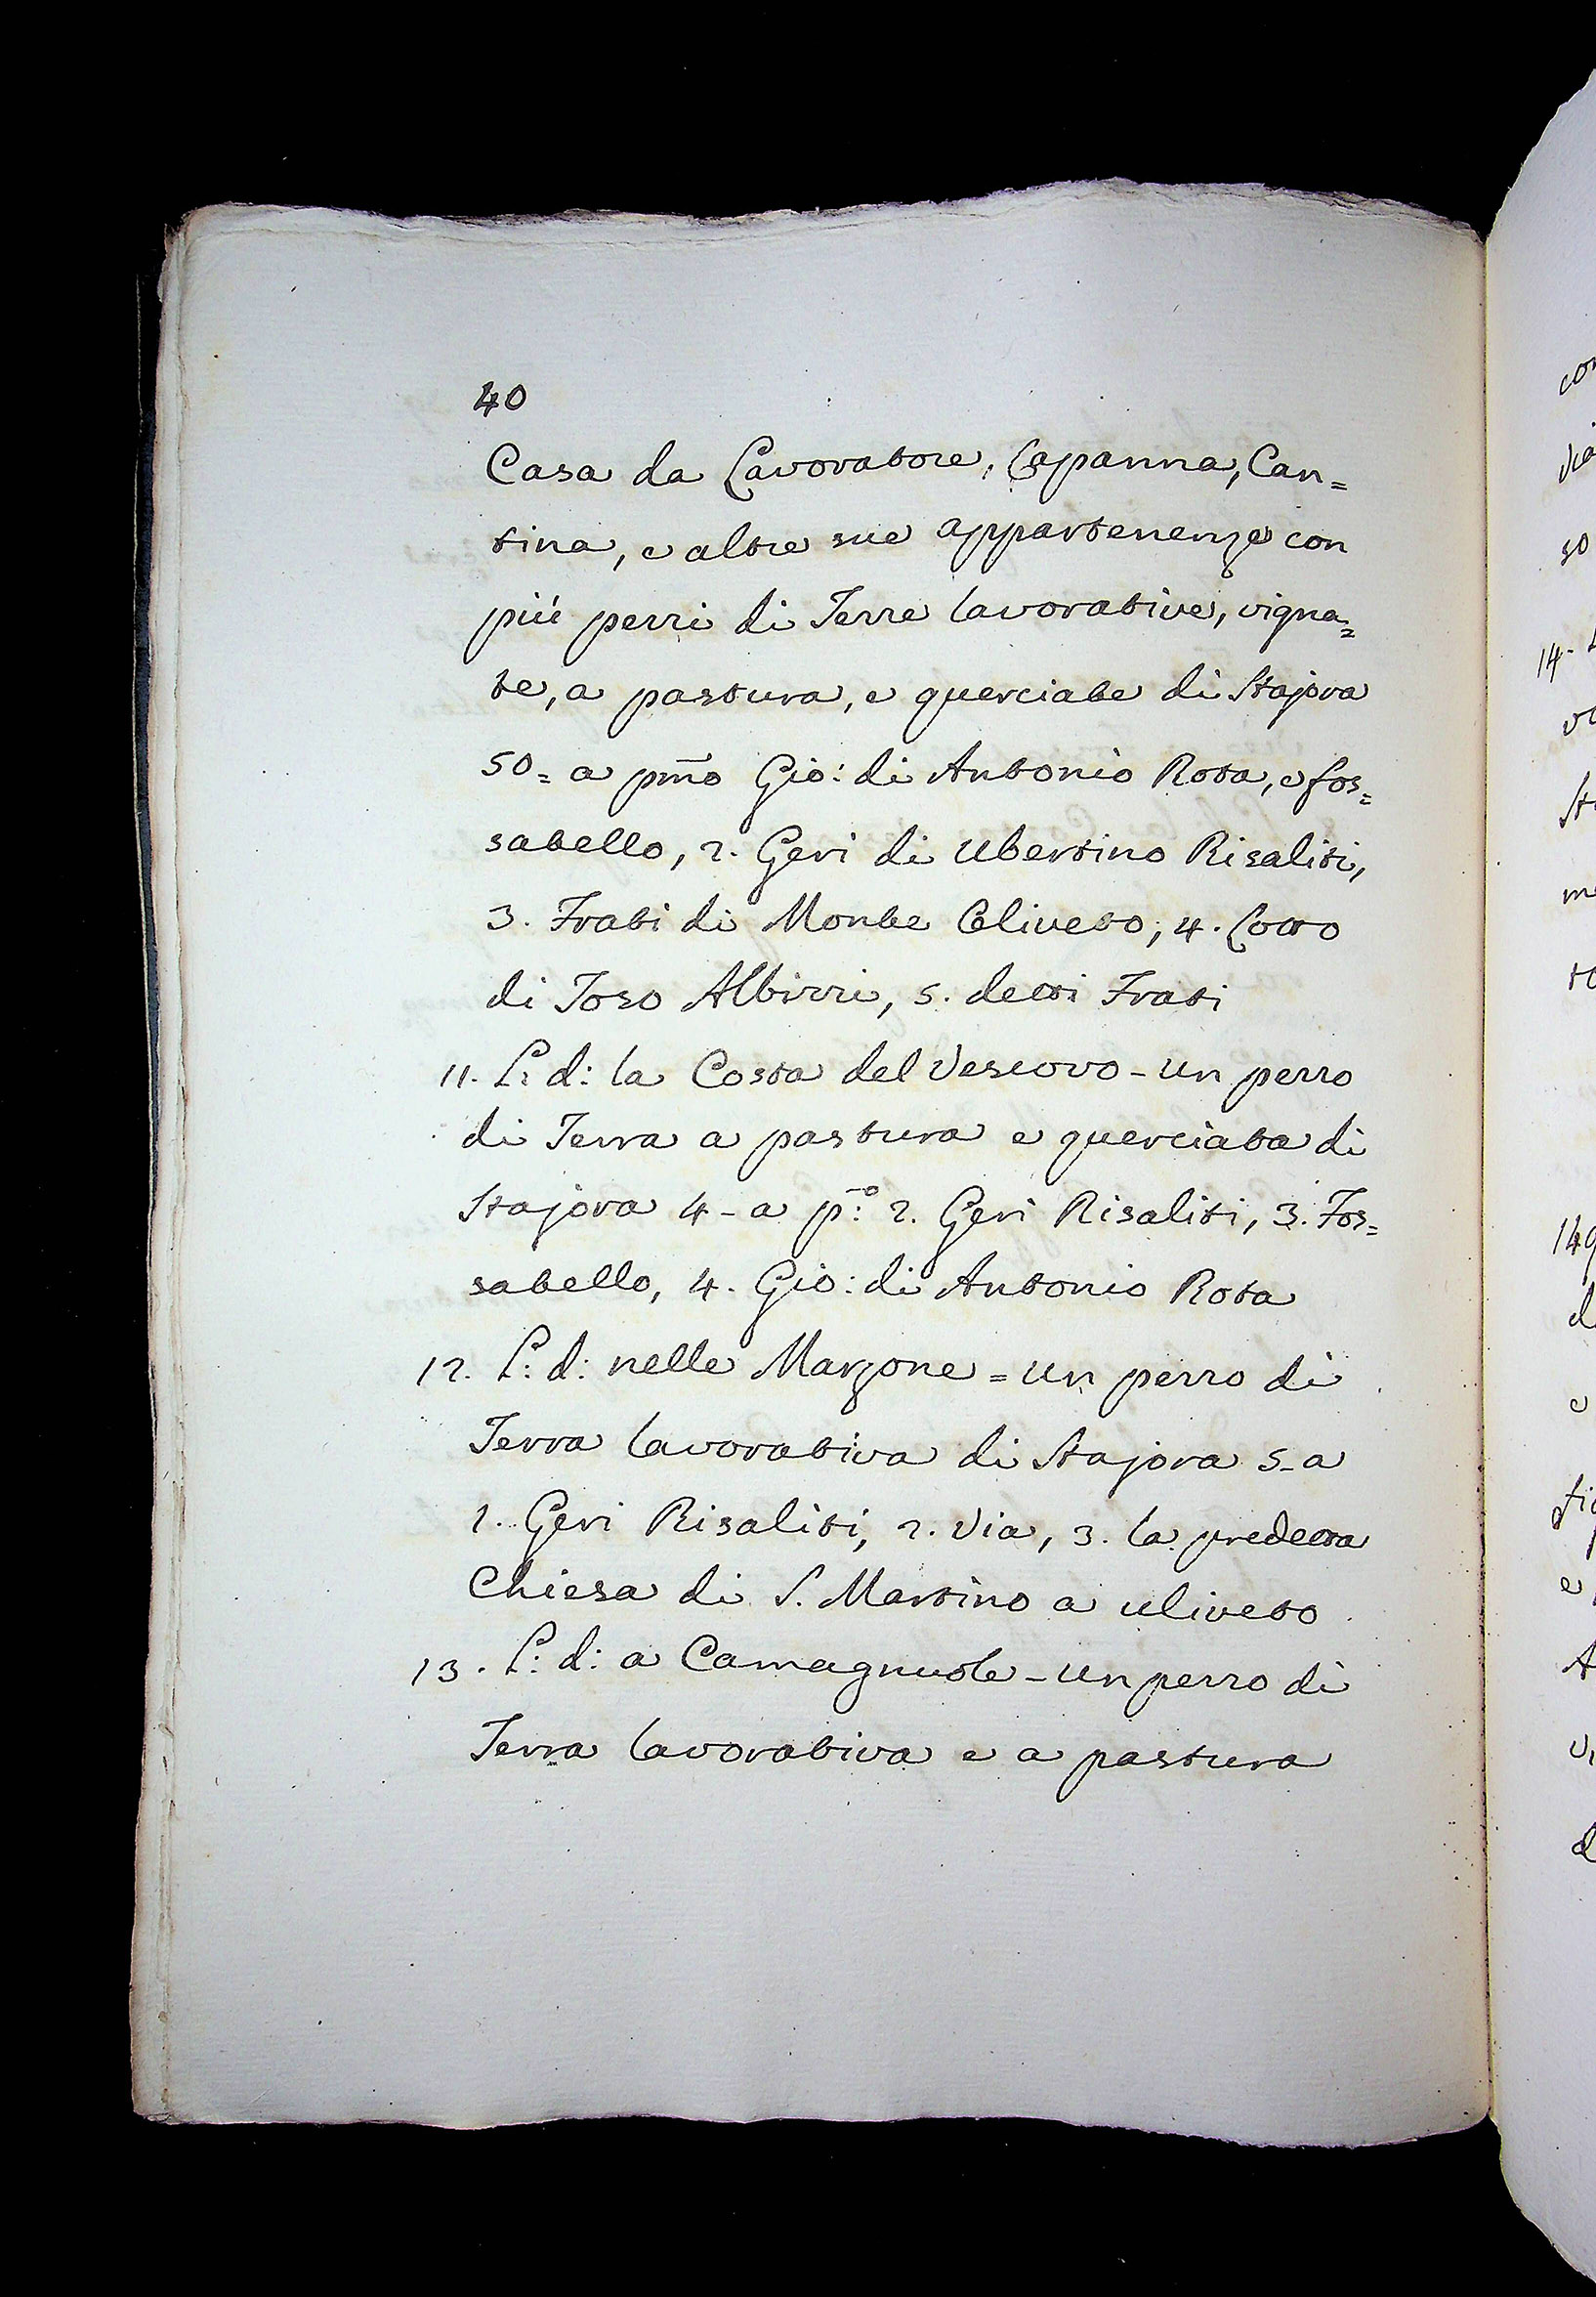 40
Casa da Lavoratore, Capanna, Can=
tina, e altre sue appartenenze con
più pezzi di Terre lavorative, vigna=
te, a pastura, e querciate di Stajora
50= a pm̄o Gio: di Antonio Rota, e fos=
satello, 2. Geri di Ubertino Risaliti,
3. Frati di Monte Oliveto; 4. Lotto
di Toso Albizzi, 5. detti Frati
11. L: d: la Costa del Vescovo - un pezzo
di Terra a pastura e querciata di
Stajora 4 - a p:o 2. Geri Risaliti, 3. Fos=
satello, 4. Gio: di Antonio Rota
12. L: d: nelle Marzone = un pezzo di
Terra lavorativa di Stajora 5 - a
1. Geri Risaliti, 2. Via, 3. la predetta
Chiesa di S. Martino a uliveto
13. L: d: a Camagnuole - un pezzo di
Terra lavorativa e a pastura
14.